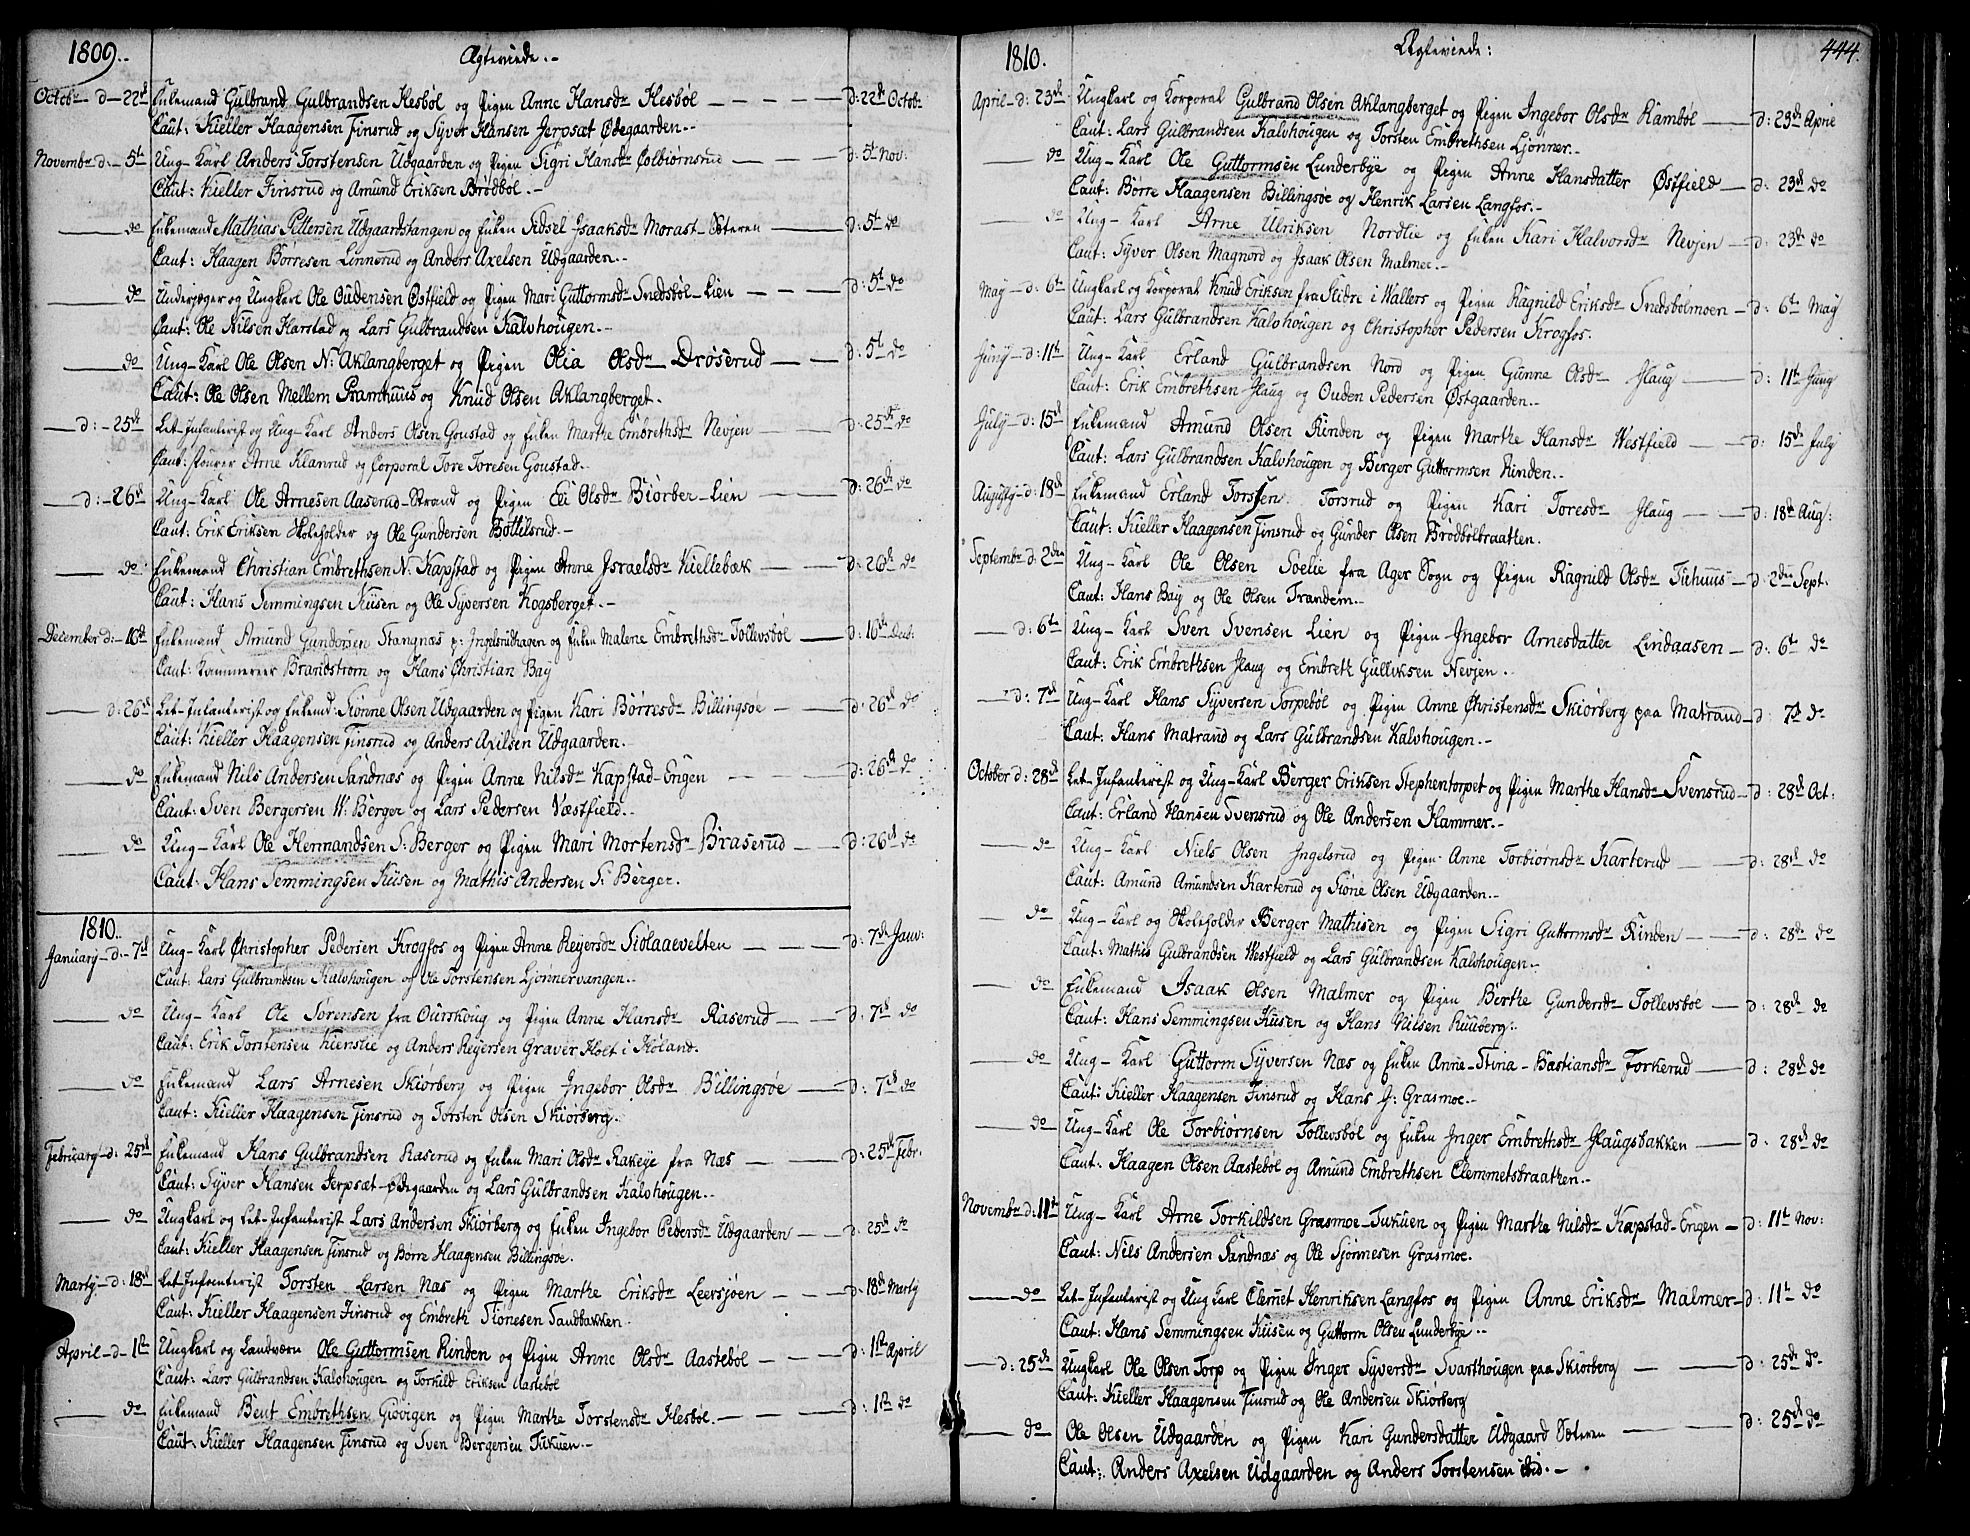 1809.
Ægteviede.
Octobr d 22d Enkemand Gulbrand Gulbrandsen Hesbøl og Pigen Anne Hansdr Hesbøl d: 22d Octob:
Caut: Kieller Haagensen Finsrud og Syver Hansen Jerpsæt Ødegaarden.
Novembr d: 5t Ung-Karl Anders Torstensen Udgaarden og Pigen Sigri Hansdr Ølbiørnsrud d: 5t Nov:
Caut: Kieller Finsrud og Amund Eriksen Brødbøl.
do Enkemand Mathias Pettersen Udgaardstangen og Enken Sidsel Isaaksdr Morast-Sæteren d: 5t do
Caut: Haagen Børresen Linnerud og Anders Axelsen Udgaarden.
do Underjæger og Ungkarl Ole Oudensen Østfield og Pigen Mari Guttormsdr Snedsbøl-Lien d: 5t do
Caut: Ole Nilsen Harstad og Lars Gulbrandsen Kalvhougen.
do Ung-Karl Ole Olsen N: Aklangberget og Pigen Olia Olsdr Drøserud d: 5t do
Caut: Ole Olsen Mellem Pramhuus og Knud Olsen Aklangberget.
d: 25de Let-Infanterist og Ung-Karl Anders Olsen Goustad og Enken Marthe Embrethsdr Nevjen d: 25de do
Caut: Fourer Arne Klanrud og Corporal Tore Toresen Goustad.
d: 26d Ung-Karl Ole Arnesen Aaserud-Strand og Pigen Eli Olsdr Biørber-Lien d: 26d do
Caut: Erik Eriksen Skoleholder og Ole Gundersen Bottilsrud.
do Enkemand Christian Embrethsen N: Kapstad og Pigen Anne Israelsdr Kiellebæk d: 26d do
Caut: Hans Semmingsen Kiisen og Ole Syversen Kogsberget.
December d: 10de Enkemand Amund Gundersen Stangnæs p: Ingelsrudhagen og Enken Malene Embrethsdr Tollevsbøl d: 10de Dec:
Caut: Kammereer Brandstrøm og Hans Christian Bay
d: 26d Let-Infanterist og Enkemd: Siønne Olsen Udgaarden og Pigen Kari Børresdr Billingsøe d: 26d do
Caut: Kieller Haagensen Finsrud og Anders Axilsen Udgaarden.
do Enkemand Nils Andersen Sandnæs og Pigen Anne Nilsdr Kapstad-Engen d: 26d do
Caut: Sven Bergersen W: Berger og Lars Pedersen Væstfield.
do Ung-Karl Ole Hermandsen S: Berger og Pigen Mari Mortensdr Braserud d: 26d do
Caut: Hans Semmingsen Kiisen og Mathis Andersen S: Berger.
1810.
January d: 7d Ung-Karl Christopher Pedersen Krogfos og Pigen Anne Reyersdr Siølaaevelten d: 7de Janv:
Caut: Lars Gulbrandsen Kalvhougen og Ole Torstensen Ljonnervangen.
do Ung-Karl Ole Sørensen fra Ourskoug og Pigen Anne Hansdr Raserud d: 7d do
Caut: Erik Torstensen Kienslie og Anders Reyersen Graver Holt i Høland.
do Enkemand Lars Arnesen Skiørberg og Pigen Ingebor Olsdr Billingsøe d: 7d do
Caut: Kieller Haagensen Finsrud og Torsten Olsen Skiørberg.
February d: 25d Enkemand Hans Gulbrandsen Raserud og Enken Mari Olsdr Rakeye fra Næs d: 25d Febr:
Caut: Syver Hansen Jerpsæt-Ødegaarden og Lars Gulbrandsen Kalvhougen.
do Ungkarl og Let-Infanterist Lars Andersen Skiørberg og Enken Ingebor Pedersdr Udgaarden d: 25d do
Caut: Kieller Haagensen Finsrud og Børre Haagensen Billingsøe.
Marty d: 18d Let-Infanterist Torsten Larsen Næs og Pigen Marthe Eriksdr Leersjøen d: 18d Marty
Caut: Kieller Haagensen Finsrud og Embreth Sionesen Sandbakken.
April d 1te Ungkarl og Landværn Ole Guttormsen Rinden og Pigen Anne Olsdr Aastebøl d: 1te April
Caut: Lars Gulbrandsen Kalvhougen og Torkild Eriksen Aastebøl
do Enkemand Bent Embrethsen Giøvigen og Pigen Marthe Torstensdr Hesbøl. d: 1te do
Caut: Kieller Haagensen Finsrud og Sven Bergersen Tukuen.
1810.
Ægteviede:
444.
April d: 23de Ungkarl og Korporal Gulbrand Olsen Aklangberget og Pigen Ingebor Olsdr Rambøl d: 23de April
Caut: Lars Gulbrandsen Kalvhougen og Torsten Embrethsen Ljønner.
do Ung-Karl Ole Guttormsen Lunderbye og Pigen Anne Hansdatter Østfield d: 23d do
Caut: Børre Haagensen Billingsøe og Henrik Larsen Langfos.
do Ung-Karl Arne Ulriksen Nordlie og Enken Kari Halvorsdr Nevjen d: 23de do
Caut: Syver Olsen Magnord og Isaak Olsen Malmer.
May d: 6te Ungkarl og Korporal Knud Eriksen fra Slidre i Wallers og Pigen Ragnild Eriksdr Snedsbølmoen d: 6te May
Caut: Lars Gulbrandsen Kalvhougen og Christopher Pedersen Krogfos.
Juny d: 11te Ung-Karl Erland Gulbrandsen Nord og Pigen Gunne Olsdr Haug d: 11te Juny
Caut: Erik Embrethsen Haug og Ouden Pedersen Østgaarden.
July d: 15d Enkemand Amund Olsen Rinden og Pigen Marthe Hansdr Westfield d: 15de July
Caut: Lars Gulbrandsen Kalvhougen og Berger Guttormsen Rinden.
Augusty d: 18d Enkemand Erland Torsten Torsrud og Pigen Kari Toresdr Haug d: 18de Aug:
Caut: Kieller Haagensen Finsrud og Gunder Olsen Brødbølbraatten.
Septembr d: 2den Ung-Karl Ole Olsen Soelie fra Ager Sogn og Pigen Ragnild Olsdr Tiehuus d: 2den Sept:
Caut: Hans Bay og Ole Olsen Trandem.
d: 6te Ung-Karl Sven Svensen Lien og Pigen Ingebor Arnesdatter Lindaasen d: 6te do
Caut: Erik Embrethsen Haug og Embreth Gulliksen Nevjen.
d: 7d Ung-Karl Hans Syversen Torpebøl og Pigen Anne Christensdr Skiørberg paa Matrand d: 7d do
Caut: Hans Matrand og Lars Gulbrandsen Kalvhougen.
October d: 28d Let-Infanterist og Ung-Karl Berger Eriksen Stephentorpet og Pigen Marthe Hansdr Svensrud d: 28d Oct:
Caut: Erland Hansen Svensrud og Ole Andersen Hammer.
do Ung-Karl Niels Olsen Ingelsrud og Pigen Anne Torbiørnsdr Karterud d: 28d do
Caut: Amund Amundsen Karterud og Sione Olsen Udgaarden.
do Ung-Karl og Skoleholder Berger Mathisen og Pigen Sigri Guttormsdr Rinden d: 28de do
Caut: Mathis Gulbrandsen Westfield og Lars Gulbrandsen Kalvhougen.
do Enkemand Isaak Olsen Malmer og Pigen Berthe Gundersdr Tollevsbøe d: 28de do
Caut: Hans Semmingsen Kiisen og Hans Nilsen Ruuberg.
do Ung-Karl Guttorm Syversen Næs og Enken Anne-Stina-Bastiansdr Forkerud d: 28d do
Caut: Kieller Haagensen Finsrud og Hans J: Grasmoe.
do Ung-Karl Ole Torbiørnsen Tollevsbøl og Enken Inger Embrethsdr Haugsbakken d: 28de do
Caut: Haagen Olsen Aastebøl og Amund Embrethsen Clemmetsbraathen.
Novembr d: 11te Ung-Karl Arne Torkildsen Grasmoe-Tukuen og Pigen Marthe Nilsdr Kapstad-Engen d: 11t Nov:
Caut: Nils Andersen Sandnæs og Ole Sjonnesen Grasmoe.
do Let-Infanterist og Ung Karl Clemet Henriksen Langfos og Pigen Anne Eriksdr Malmer d: 11t do
Caut: Hans Semmingsen Kiisen og Guttorm Olsen Lunderbye.
d: 25de Ungkarl Ole Olsen Torp og Pigen Inger Syversdr Svarthougen paa Skiørberg d: 25de do
Caut: Kieller Haagensen Finsrud og Ole Andersen Skiørberg
do Ole Olsen Udgaarden og Pigen Kari Gundersdatter Udgaard Sæteren d: 25de do
Caut: Anders Axelsen Udgaarden og Anders Torstensen ibid.